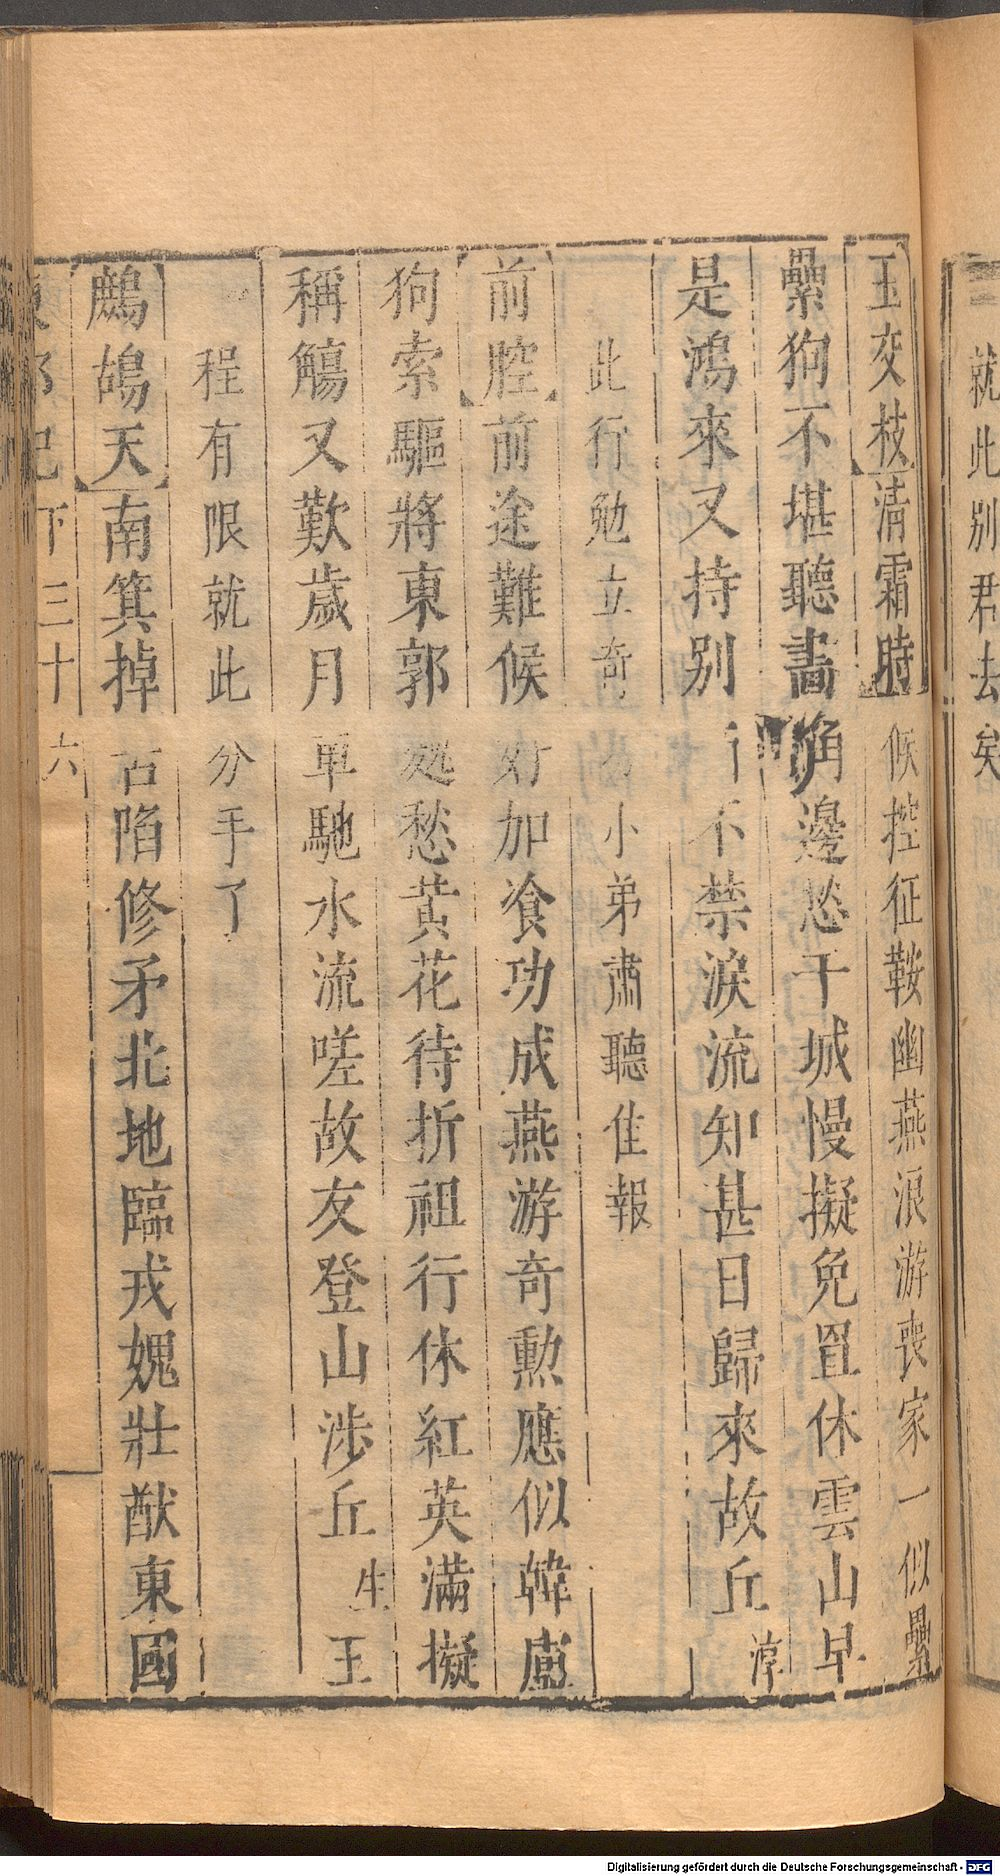 就此别君去矣
玉交枝清霜時候控征鞍幽燕浪游喪家一似纍
纍狗不堪聽畵角邊愁干城慢擬免罝休雲山早
是鴻來又持别
不禁淚流知甚日歸來故丘淳
此行勉立奇
小弟肅聽佳報
前腔前途難候好加飡功成燕游奇勲應似韓盧
狗索驅將東郭処愁黃花待折祖行休紅英滿擬
稱觴又歎歲月單馳水流嗟故友登山涉丘生王
程有限就此分手了
鷓鴣天南箕掉舌陷修矛北地臨戎媿壯猷東國
東郭記下三十六
Digitalisierung gefördert durch die Deutsche Forschungsgemeinschaft - DFG